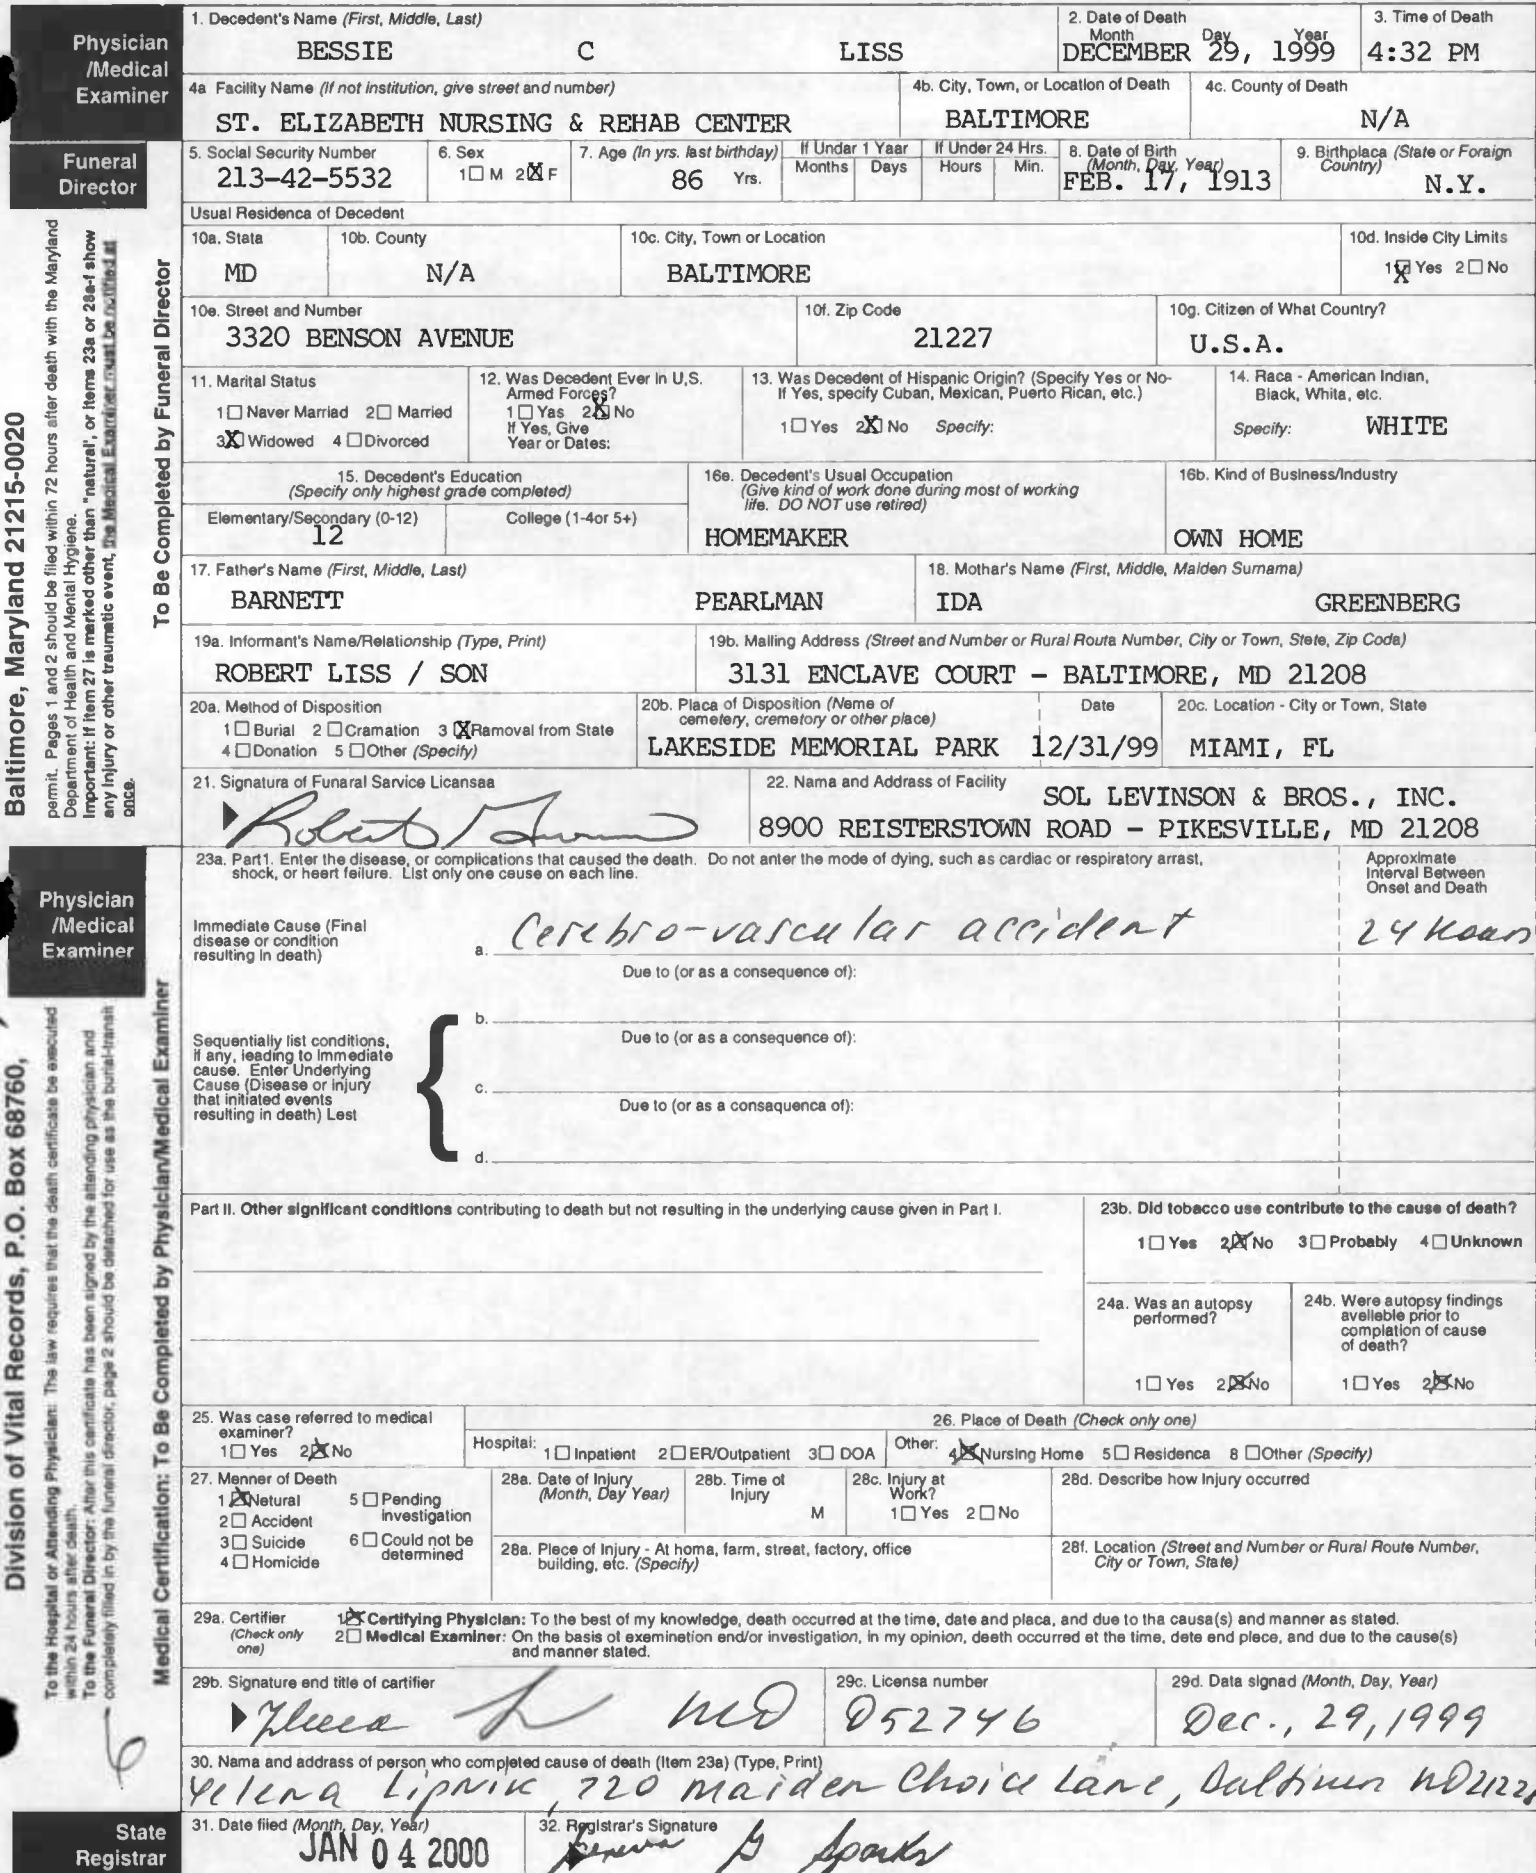 Physician
/Medical
Examiner
1. Decedent's Name (First, Middle, Last)
BESSIE C LISS
2. Date of Death
Month Day Year
DECEMBER 29, 1999
3. Time of Death
4:32 PM
4a Facility Name (If not institution, give street and number)
ST. ELIZABETH NURSING & REHAB CENTER
4b. City, Town, or Location of Death
BALTIMORE
4c. County of Death
N/A
Funeral
Director
5. Social Security Number
213-42-5532
6. Sex
1☐ M 2☒ F
7. Age (In yrs. last birthday)
86 Yrs.
If Under 1 Year
Months Days
If Under 24 Hrs.
Hours Min.
8. Date of Birth
(Month, Day, Year)
FEB. 17, 1913
9. Birthplace (State or Foreign
Country)
N.Y.
Usual Residence of Decedent
10a. State
MD
10b. County
N/A
10c. City, Town or Location
BALTIMORE
10d. Inside City Limits
1☒ Yes 2☐ No
10e. Street and Number
3320 BENSON AVENUE
10f. Zip Code
21227
10g. Citizen of What Country?
U.S.A.
11. Marital Status
1☐ Never Married 2☐ Married
3☒ Widowed 4☐ Divorced
12. Was Decedent Ever in U.S.
Armed Forces?
1☐ Yes 2☒ No
If Yes, Give
Year or Dates:
13. Was Decedent of Hispanic Origin? (Specify Yes or No-
If Yes, specify Cuban, Mexican, Puerto Rican, etc.)
1☐ Yes 2☒ No Specify:
14. Race - American Indian,
Black, White, etc.
Specify: WHITE
15. Decedent's Education
(Specify only highest grade completed)
Elementary/Secondary (0-12)
12
College (1-4or 5+)
16a. Decedent's Usual Occupation
(Give kind of work done during most of working
life. DO NOT use retired)
HOMEMAKER
16b. Kind of Business/Industry
OWN HOME
17. Father's Name (First, Middle, Last)
BARNETT PEARLMAN
18. Mother's Name (First, Middle, Maiden Surname)
IDA GREENBERG
19a. Informant's Name/Relationship (Type, Print)
ROBERT LISS / SON
19b. Mailing Address (Street and Number or Rural Route Number, City or Town, State, Zip Code)
3131 ENCLAVE COURT - BALTIMORE, MD 21208
20a. Method of Disposition
1☐ Burial 2☐ Cremation 3☒ Removal from State
4☐ Donation 5☐ Other (Specify)
20b. Place of Disposition (Name of
cemetery, crematory or other place)
LAKESIDE MEMORIAL PARK
Date
12/31/99
20c. Location - City or Town, State
MIAMI, FL
21. Signature of Funeral Service Licensee
Robert
22. Name and Address of Facility
SOL LEVINSON & BROS., INC.
8900 REISTERSTOWN ROAD - PIKESVILLE, MD 21208
To Be Completed by Funeral Director
Baltimore, Maryland 21215-0020
permit. Pages 1 and 2 should be filed within 72 hours after death with the Maryland
Department of Health and Mental Hygiene.
Important: If item 27 is marked other than "natural", or items 23a or 28a-f show
any injury or other traumatic event, the Medical Examiner must be notified at
once.
Physician
/Medical
Examiner
23a. Part1. Enter the disease, or complications that caused the death. Do not enter the mode of dying, such as cardiac or respiratory arrest,
shock, or heart failure. List only one cause on each line.
Approximate
Interval Between
Onset and Death
Immediate Cause (Final
disease or condition
resulting in death)
a. Cerebro-vascular accident 24 Hours
Due to (or as a consequence of):
b.
Due to (or as a consequence of):
Sequentially list conditions,
if any, leading to immediate
cause. Enter Underlying
Cause (Disease or injury
that initiated events
resulting in death) Last
c.
Due to (or as a consequence of):
d.
Part II. Other significant conditions contributing to death but not resulting in the underlying cause given in Part I.
23b. Did tobacco use contribute to the cause of death?
1☐ Yes 2☒ No 3☐ Probably 4☐ Unknown
24a. Was an autopsy
performed?
1☐ Yes 2☒ No
24b. Were autopsy findings
available prior to
completion of cause
of death?
1☐ Yes 2☒ No
25. Was case referred to medical
examiner?
1☐ Yes 2☒ No
26. Place of Death (Check only one)
Hospital: 1☐ Inpatient 2☐ ER/Outpatient 3☐ DOA Other: 4☒ Nursing Home 5☐ Residence 8☐ Other (Specify)
27. Manner of Death
1☒ Natural
2☐ Accident
3☐ Suicide
4☐ Homicide
5☐ Pending
investigation
6☐ Could not be
determined
28a. Date of Injury
(Month, Day Year)
28b. Time of
Injury
M
28c. Injury at
Work?
1☐ Yes 2☐ No
28d. Describe how injury occurred
28a. Place of Injury - At home, farm, street, factory, office
building, etc. (Specify)
28f. Location (Street and Number or Rural Route Number,
City or Town, State)
29a. Certifier
(Check only
one)
1☒ Certifying Physician: To the best of my knowledge, death occurred at the time, date and place, and due to the cause(s) and manner as stated.
2☐ Medical Examiner: On the basis of examination and/or investigation, in my opinion, death occurred at the time, date and place, and due to the cause(s)
and manner stated.
29b. Signature and title of certifier
MD
29c. License number
D52746
29d. Date signed (Month, Day, Year)
Dec., 29, 1999
30. Name and address of person who completed cause of death (Item 23a) (Type, Print)
Yelena Lipnik, 720 Maiden Choice Lane, Baltimore MD 21228
Medical Certification: To Be Completed by Physician/Medical Examiner
Division of Vital Records, P.O. Box 68760,
To the Hospital or Attending Physician: The law requires that the death certificate be executed
within 24 hours after death.
To the Funeral Director: After this certificate has been signed by the attending physician and
completely filled in by the funeral director, page 2 should be detached for use as the burial-transit
6
State
Registrar
31. Date filed (Month, Day, Year)
JAN 04 2000
32. Registrar's Signature
Geneva G Sparks